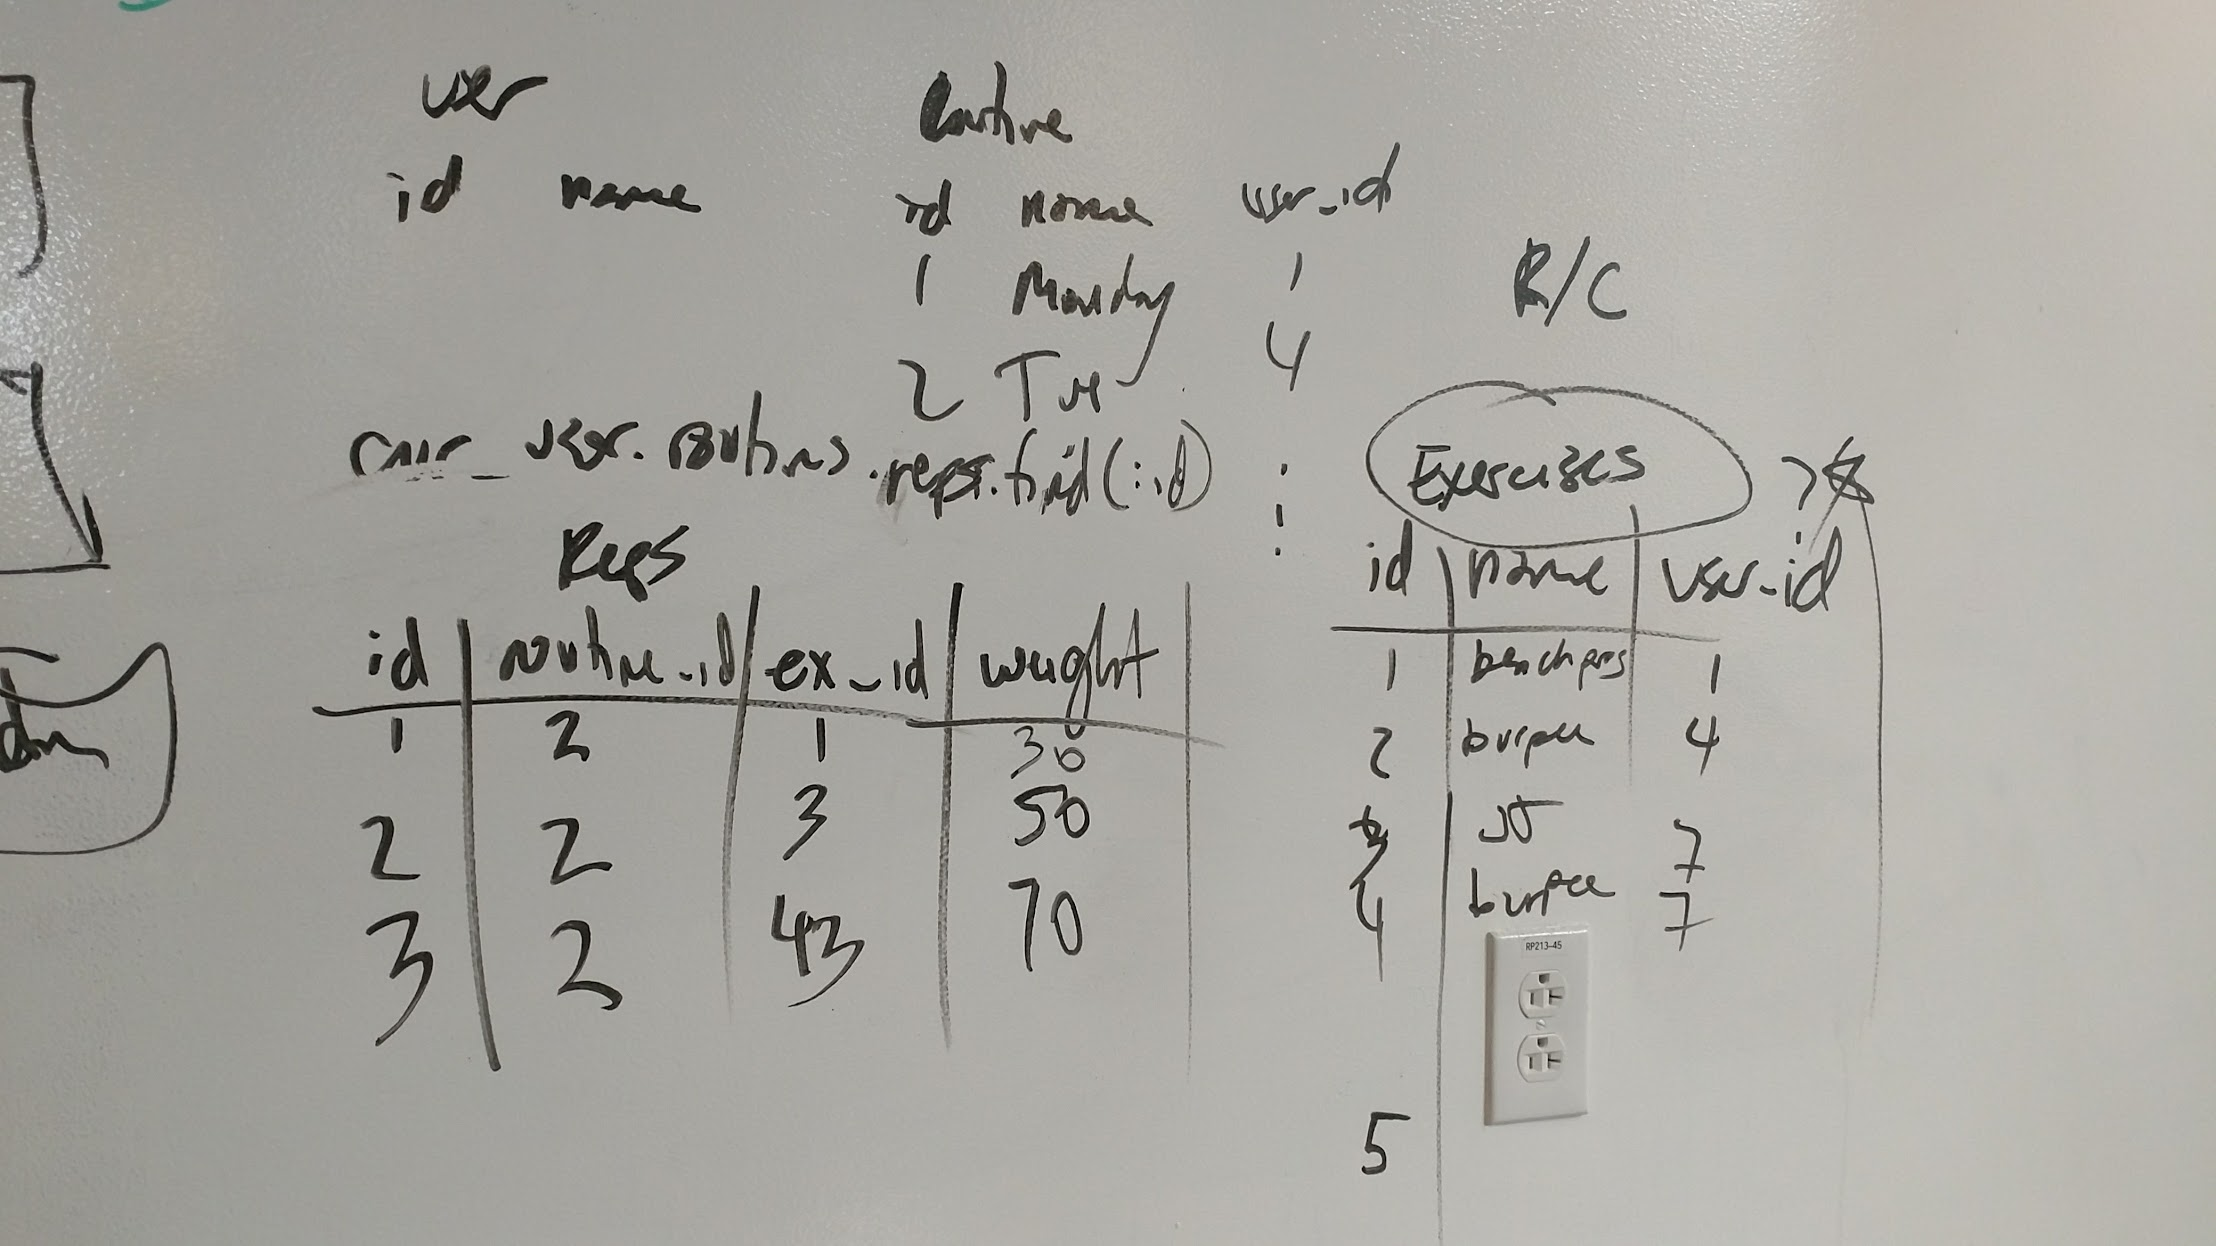 user
id name
Routine
id name user_id
1 Monday 1
2 Tue 4
R/C
curr_user.routines.reps.find(:id)
Reps
id routine_id ex_id weight
1 2 1 30
2 2 3 50
3 2 43 70
Exercises
id name user_id
1 benchpres 1
2 burpee 4
3 7
4 burpee 7
5
RP213-45